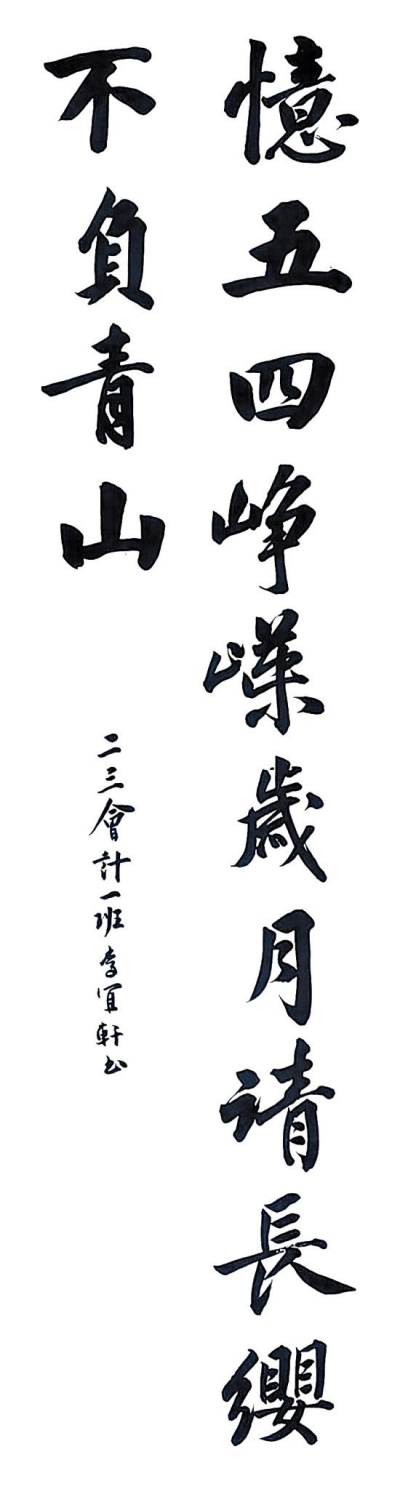 憶五四崢嶸歲月請長纓
不負青山
二三會計一班李宜軒书